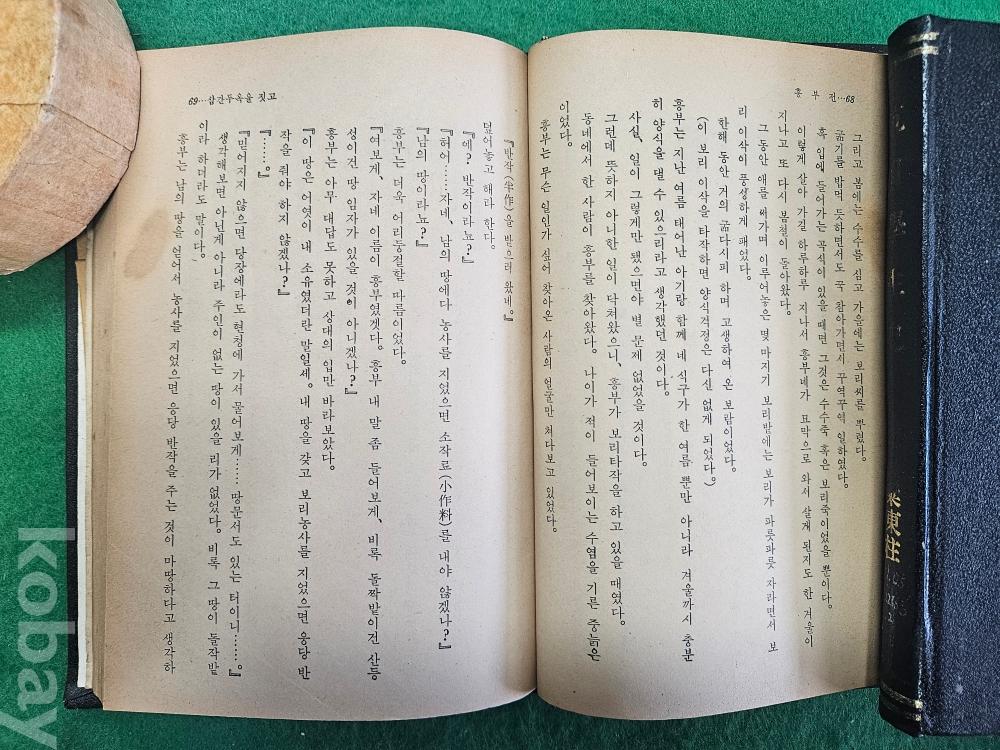 흥 부 전…68
그리고 봄에는 수수를 심고 가을에는 보리씨를 뿌렸다.
굶기를 밥먹 듯하면서도 꾹 참아가면서 꾸역꾸역 일하였다.
혹 입에 들어가는 곡식이 있을 때면 그것은 수수죽 혹은 보리죽이었을 뿐이다.
이렇게 살아 가길 하루하루 지나서 흥부네가 묘막으로 와서 살게 된지도 한 겨울이
지나고 또 다시 봄철이 돌아왔다.
그 동안 애를 써가며 이루어놓은 몇 마지기 보리밭에는 보리가 파릇파릇 자라면서 보
리 이삭이 풍성하게 패었다.
한해 동안 거의 굶다시피 하며 고생하여 온 보람이었다.
(이 보리 이삭을 타작하면 양식걱정은 다신 없게 되었다.)
흥부는 지난 여름 태어난 아기랑 함께 네 식구가 한 여름 뿐만 아니라 겨울까지 충분
히 양식을 댈 수 있으리라고 생각했던 것이다.
사실, 일이 그렇게만 됐으면야 별 문제 없었을 것이다.
그런데 뜻하지 아니한 일이 닥쳐왔으니, 흥부가 보리타작을 하고 있을 때였다.
동네에서 한 사람이 흥부를 찾아왔다. 나이가 적이 들어보이는 수염을 기른 중늙은
이었다.
흥부는 무슨 일인가 싶어 찾아온 사람의 얼굴만 쳐다보고 있었다.
69…삼간두옥을 짓고
『반작(半作)을 받으러 왔네.』
덮어놓고 해라 한다.
『에? 반작이라뇨?』
『허어……자네, 남의 땅에다 농사를 지었으면 소작료(小作料)를 내야 않겠나?』
『남의 땅이라뇨?』
흥부는 더욱 어리둥절할 따름이었다.
『여보게, 자네 이름이 흥부였겟다. 흥부 내 말 좀 들어보게, 비록 돌짝밭이건 산등
성이건 땅 임자가 있을 것이 아니겠나?』
흥부는 아무 대답도 못하고 상대의 입만 바라보았다.
『이 땅은 어엿이 내 소유였더란 말일세. 내 땅을 갖고 보리농사를 지었으면 응당 반
작을 줘야 하지 않겠나?』
『……。』
『믿어지지 않으면 당장에라도 현청에 가서 물어보게…… 땅문서도 있는 터이니……。』
생각해보면 아닌게 아니라 주인이 없는 땅이 있을 리가 없었다. 비록 그 땅이 돌작밭
이라 하더라도 말이다.
흥부는 남의 땅을 얻어서 농사를 지었으면 응당 반작을 주는 것이 마땅하다고 생각하
東柱
kobay